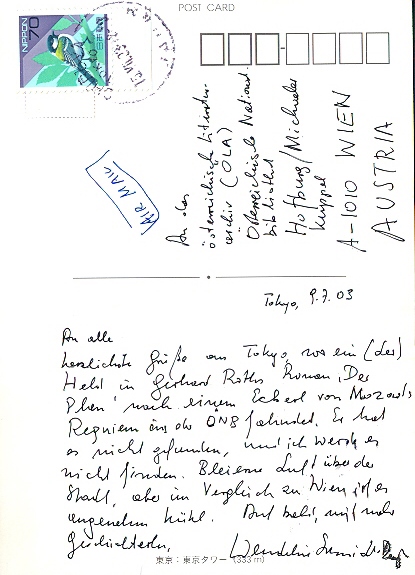 POST CARD
NIPPON
70
日本郵便
AIR MAIL
An das
österreichische Literatur-
archiv (ÖLA)
Österreichische National-
bibliothek
Hofburg/Michaeler
Kuppel
A-1010 WIEN
AUSTRIA
Tokyo, 9.7.03
An alle
herzlichste Grüße aus Tokyo, wo ein (der)
Held in Gerhard Roths Roman „Der
Plan" nach einem Eckerl von Mozarts
Requiem aus der ÖNB fahndet. Er hat
es nicht gefunden, und ich werde es
nicht finden. Bleierne Luft über der
Stadt, aber im Vergleich zu Wien ist es
angenehm kühl. Auf bald, mit mehr
Geschichterln,
Wendelin Schmidt-D
東京:東京タワー (333m)